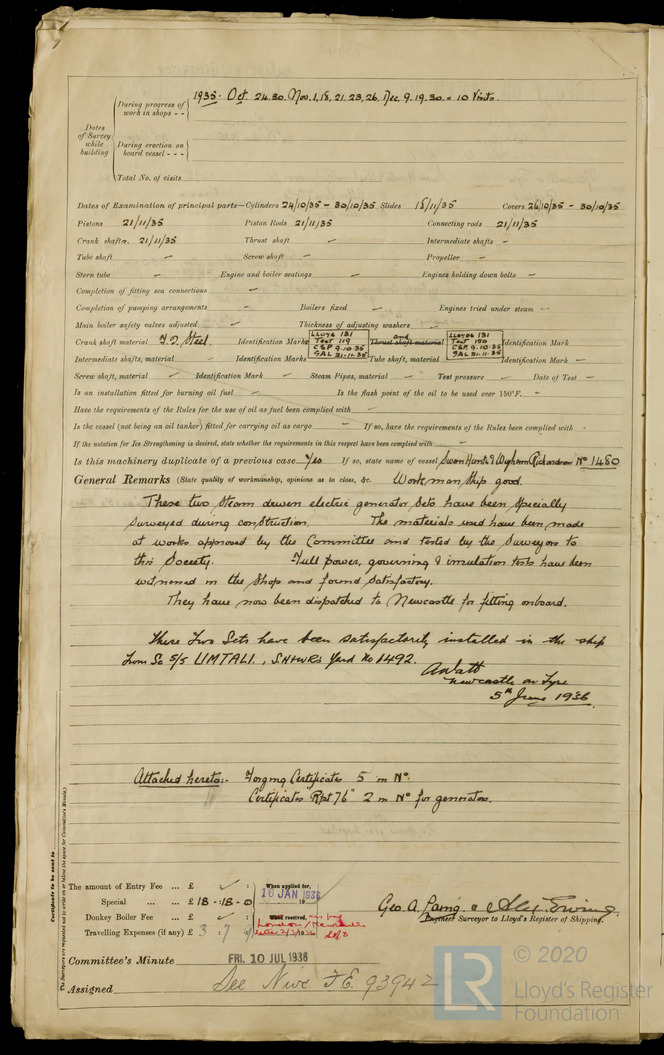 During progress of work in shops - - 1935. Oct. 24.30. Nov. 1, 18, 21. 23, 26, Dec. 9. 19. 30. = 10 Visits.
Dates of Survey while building
During erection on board vessel - - -
Total No. of visits
Dates of Examination of principal parts—Cylinders 24/10/35 – 30/10/35 Slides 18/11/35 Covers 26/10/35 – 30/10/35
Pistons 21/11/35 Piston Rods 21/11/35 Connecting rods 21/11/35
Crank shafts. 21/11/35 Thrust shaft – Intermediate shafts –
Tube shaft – Screw shaft – Propeller –
Stern tube – Engine and boiler seatings – Engines holding down bolts –
Completion of fitting sea connections –
Completion of pumping arrangements – Boilers fixed – Engines tried under steam –
Main boiler safety valves adjusted – Thickness of adjusting washers
Crank shaft material I.Q. Steel. Identification Marks LLOYDS 131 Test 119 CSP. 9.10.35 GAL 21.11.35 Thrust shaft material and LLOYDS 131 Test 150 CSP. 9.10.35 GAL. 21.11.35 Identification Mark
Intermediate shafts, material Identification Marks Tube shaft, material Identification Mark –
Screw shaft, material – Identification Mark – Steam Pipes, material – Test pressure – Date of Test –
Is an installation fitted for burning oil fuel – Is the flash point of the oil to be used over 150°F. –
Have the requirements of the Rules for the use of oil as fuel been complied with –
Is the vessel (not being an oil tanker) fitted for carrying oil as cargo – If so, have the requirements of the Rules been complied with -
If the notation for Ice Strengthening is desired, state whether the requirements in this respect have been complied with –
Is this machinery duplicate of a previous case Yes If so, state name of vessel Swan Hunter & Wigham Richardson No 1480
General Remarks (State quality of workmanship, opinions as to class, &c. Workmanship good.
These two steam driven electric generator sets have been specially
surveyed during construction. The materials used have been made
at works approved by the Committee and tested by the Surveyors to
this Society. Full power, governing & insulation tests have been
witnessed in the shop and found satisfactory.
They have now been dispatched to Newcastle for fitting onboard.
These Two Sets have been satisfactorily installed in the ship
S/S UMTALI., S.H&WR's Yard No 1492.
A Watt
Newcastle on Tyne
5th June 1936.
Attached hereto:- Forging Certificates 5 in No.
Certificates "Rpt 76" 2 in No for generators.
Certificate to be sent to
The Surveyors are requested not to write on or below the space for Committee's Minute.
The amount of Entry Fee ... £ : : When applied for,
Special ... ... £ 18 - 18 - 0 16 JAN 1936
Donkey Boiler Fee ... £ : : When received,
Travelling Expenses (if any) £ 3 : 7 :
Engineer Surveyor to Lloyd's Register of Shipping.
Committee's Minute FRI. 10 JUL 1936
Assigned See Nwc F.E. 93942
LR © 2020
Lloyd's Register
Foundation